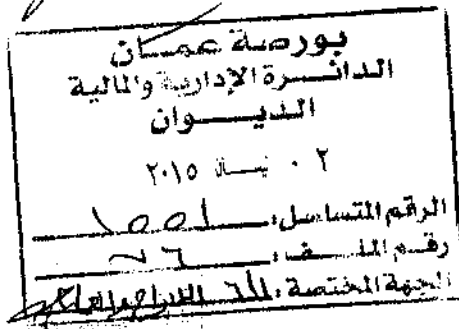 بورصة عمان
الدائرة الإدارية والمالية
الديوان
٠٢ نيسان ٢٠١٥
الرقم المتسلسل: ١٥٥١
رقم الملف:
الجهة المختصة: